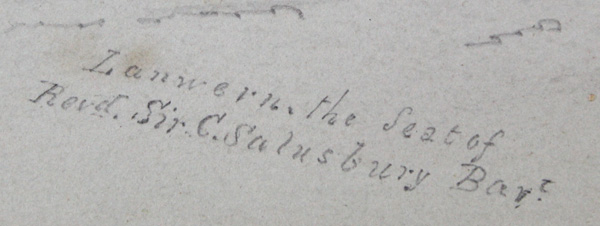 Lanwern. the Seat of
Revd. Sir. C. Salusbury Bart.